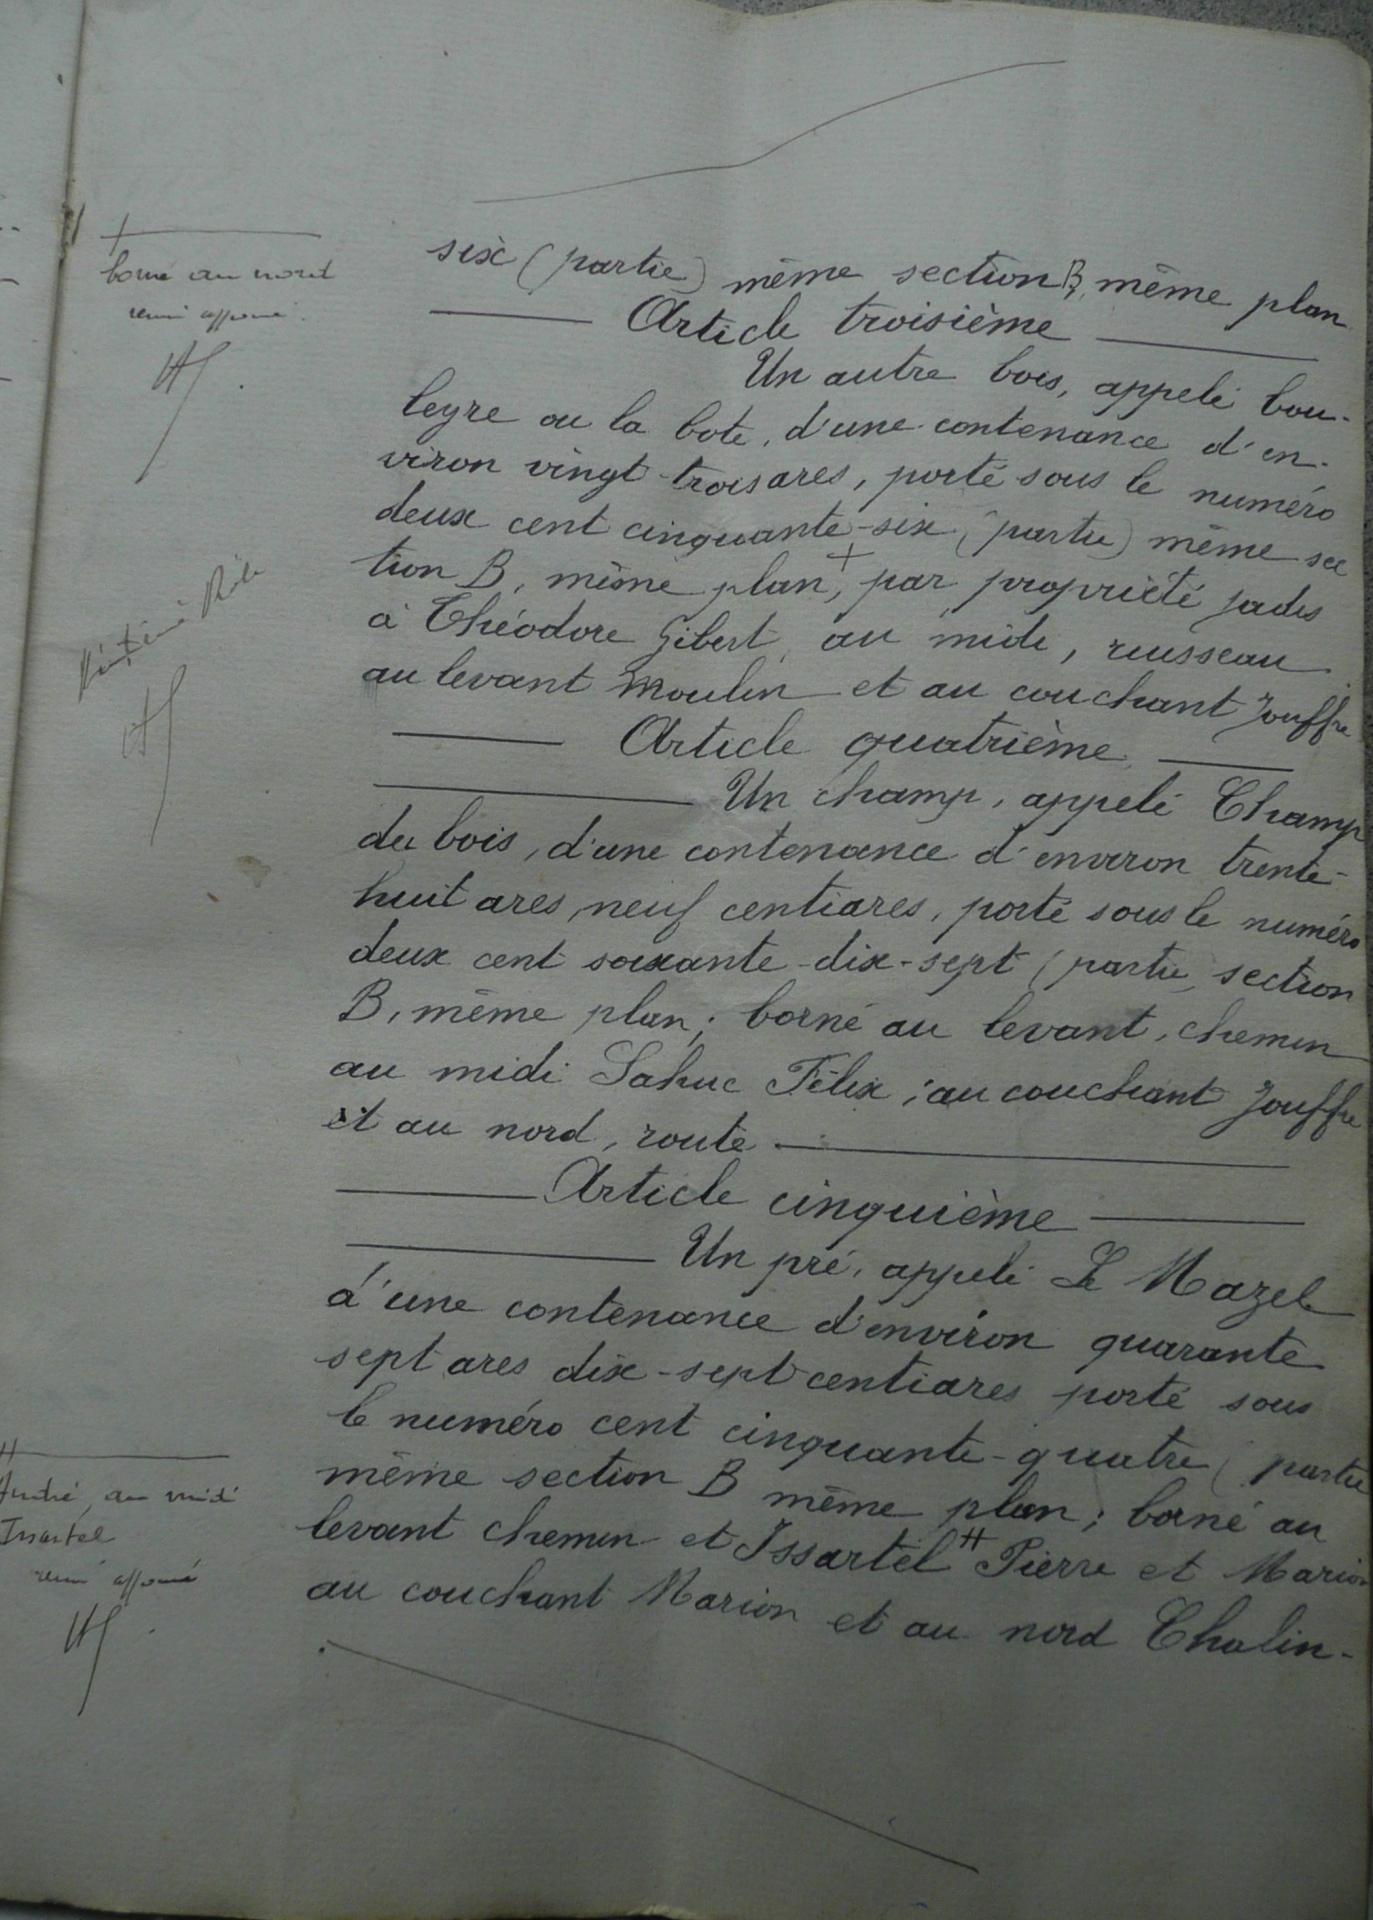 six (partie) même section B, même plan
Article troisième
Un autre bois, appelé bou-
leyre ou la bote, d'une contenance d'en-
viron vingt-trois ares, porté sous le numéro
deux cent cinquante-six (partie) même sec
tion B, même plan +, par propriété jadis
à Théodore Gibert, au midi, ruisseau
au levant Moulin et au couchant Jouffre
Article quatrième
Un champ, appelé Champ
du bois, d'une contenance d'environ trente-
huit ares, neuf centiares, porté sous le numéro
deux cent soixante-dix-sept (partie, section
B, même plan; borné au levant, chemin
au midi Sahuc Félix; au couchant Jouffre
et au nord, route
Article cinquième
Un pré, appelé Le Mazel
d'une contenance d'environ quarante
sept ares dix-sept centiares porté sous
le numéro cent cinquante-quatre (partie
même section B même plan; borné au
levant chemin et Issartel # Pierre et Marion
au couchant Marion et au nord Chalin-
+
borné au nord
#
André, au midi
Issartel